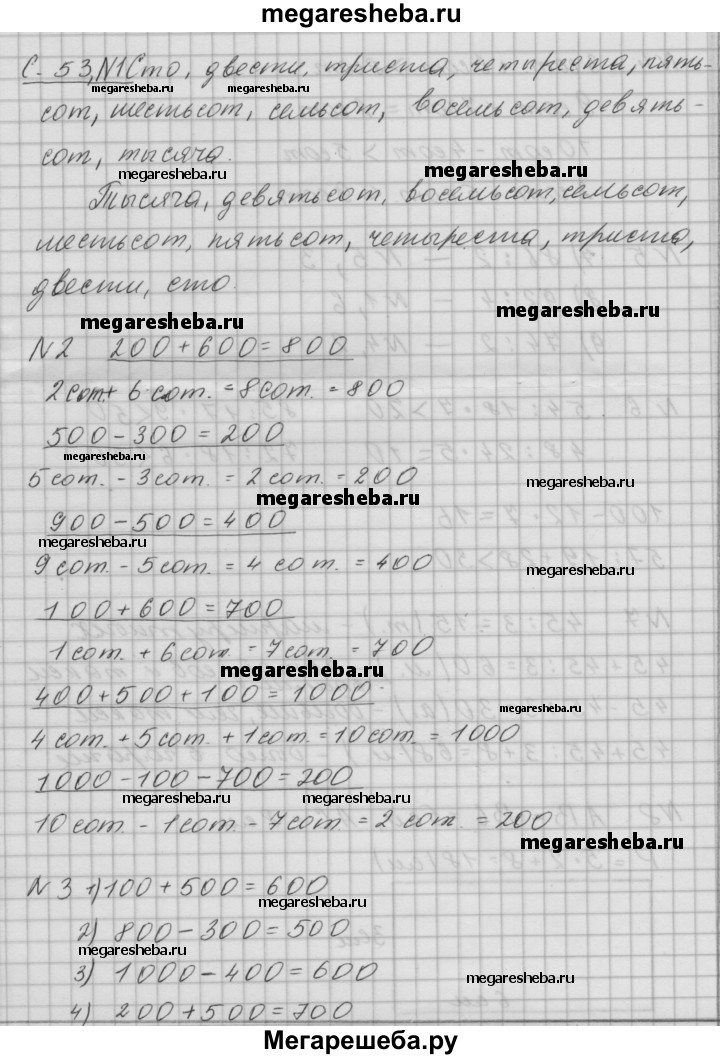 megaresheba.ru
С. 53, N1 Сто, двести, триста, четыреста, пять-
megaresheba.ru megaresheba.ru
сот, шестьсот, семьсот, восемьсот, девять-
сот, тысяча.
megaresheba.ru megaresheba.ru
Тысяча, девятьсот, восемьсот, семьсот,
шестьсот, пятьсот, четыреста, триста,
двести, сто.
megaresheba.ru
megaresheba.ru
N 2 200 + 600 = 800
2 сот. + 6 сот. = 8 сот. = 800
500 - 300 = 200
megaresheba.ru
5 сот. - 3 сот. = 2 сот. = 200
megaresheba.ru
megaresheba.ru
900 - 500 = 400
megaresheba.ru
9 сот. - 5 сот. = 4 сот. = 400
megaresheba.ru
100 + 600 = 700
1 сот. + 6 сот. = 7 сот. = 700
megaresheba.ru
400 + 500 + 100 = 1000
megaresheba.ru
4 сот. + 5 сот. + 1 сот. = 10 сот. = 1000
1000 - 100 - 700 = 200
megaresheba.ru megaresheba.ru
10 сот. - 1 сот. - 7 сот. = 2 сот. = 200
megaresheba.ru
N 3 1) 100 + 500 = 600
2) 800 - 300 = 500
megaresheba.ru
3) 1000 - 400 = 600
megaresheba.ru
4) 200 + 500 = 700
Мегарешеба.ру